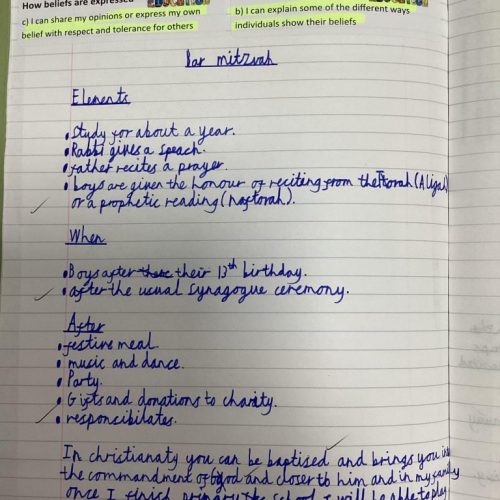 How beliefs are expressed
c) I can share my opinions or express my own
belief with respect and tolerance for others
b) I can explain some of the different ways
individuals show their beliefs
Bar mitzvah
Elements
• Study for about a year.
• Rabbi gives a speach.
• father recites a prayer.
• boys are given the honour of reciting from the Torah (Aliyah)
or a prophetic reading (haftorah).
When
• Boys after their 13th birthday.
• after the usual synagogue ceremony.
After
• festive meal
• music and dance.
• Party.
• Gifts and donations to charity.
• responcibilates.
In christianaty you can be baptised and brings you
the commandment of god and closer to him and in my family
once I finish school I will be able to play